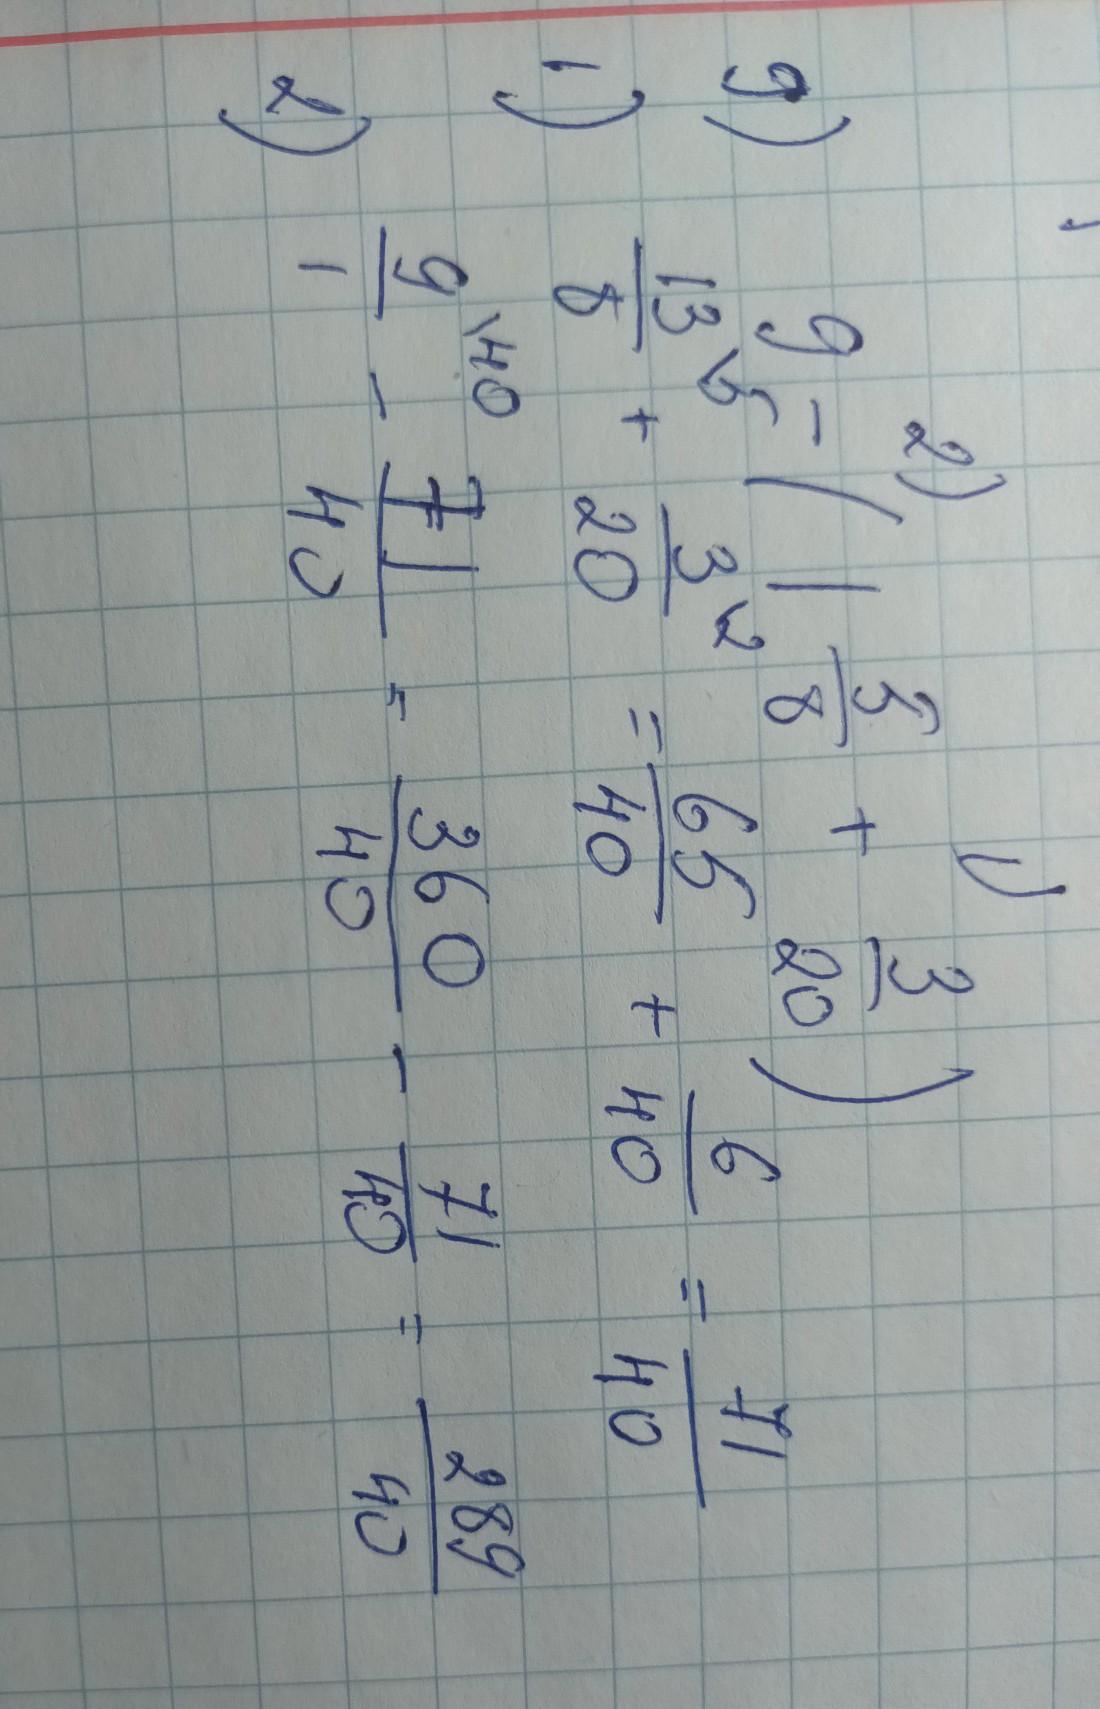 2) 1)
9) 9 - (1 5/8 + 3/20)
1) 13\5/8 + 3\2/20 = 65/40 + 6/40 = 71/40
2) 9\40/1 - 71/40 = 360/40 - 71/40 = 289/40